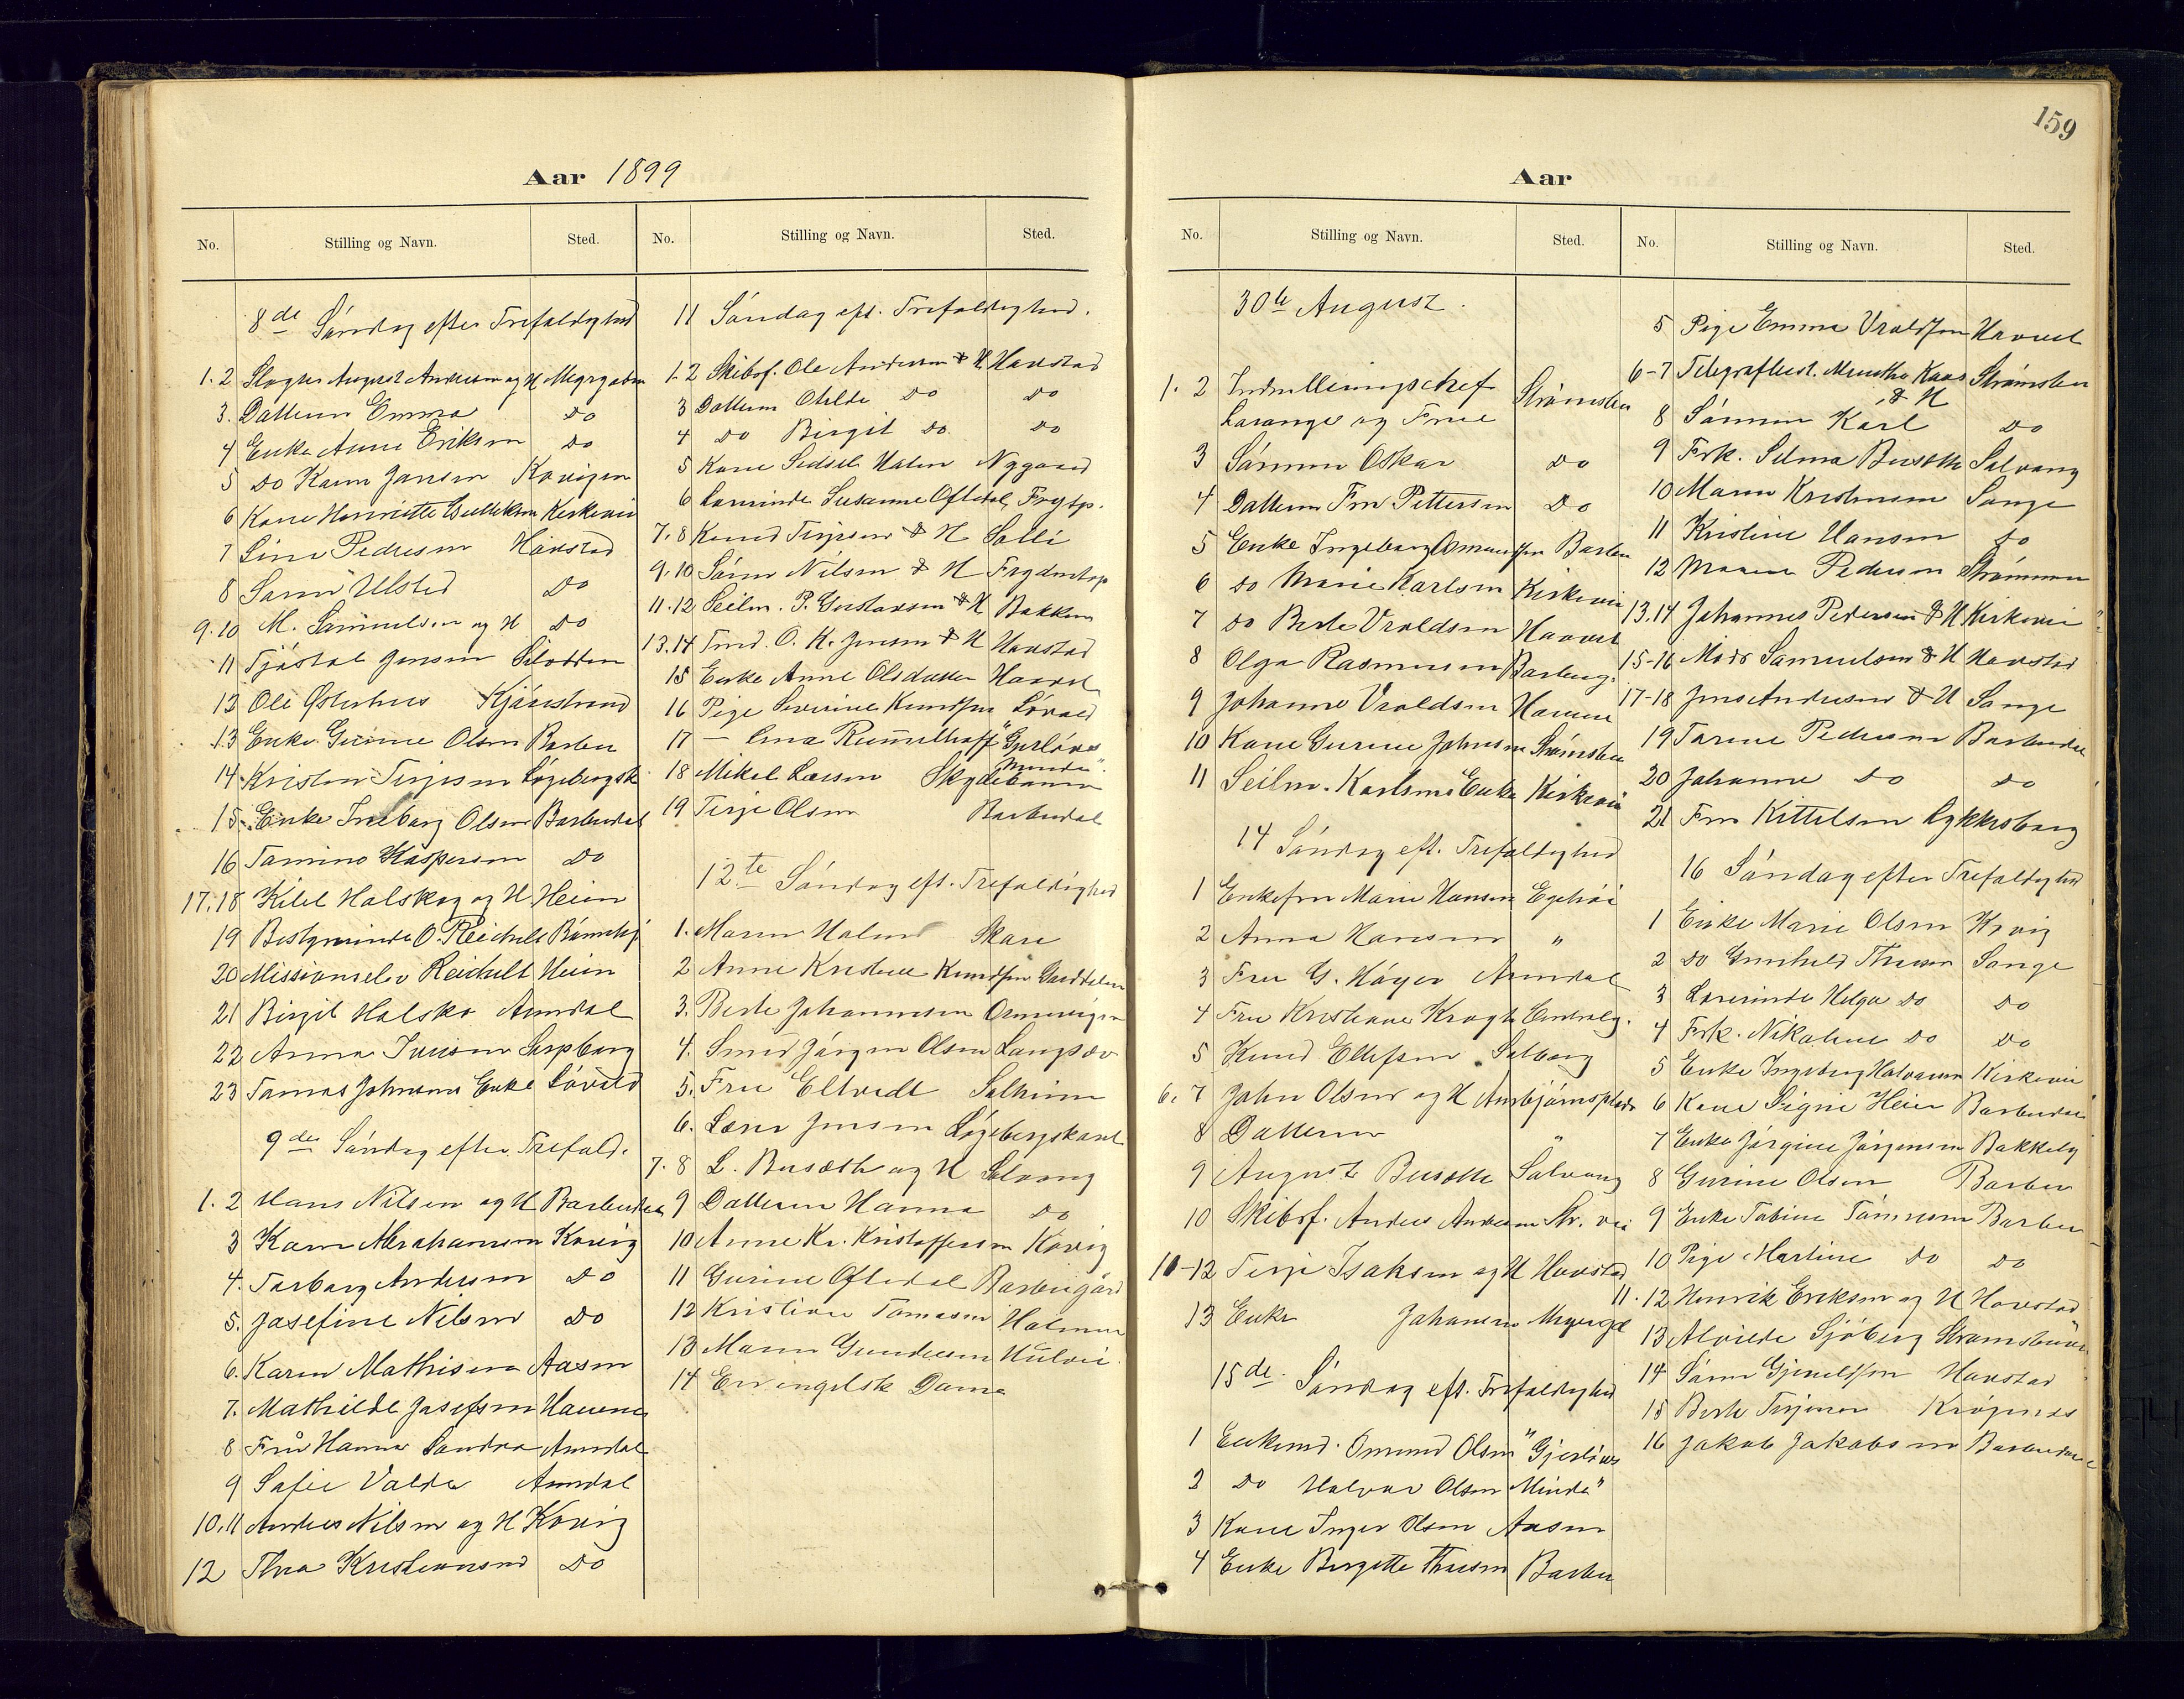 159
Aar 1899
No. Stilling og Navn. Sted.
8de Søndag efter Trefoldighed
1. 2 Slagter August Andersen og H
3. Datteren Emma Do
4 Enke Anne Eriksen Do
5 Do Karen Jansen
6 Kone Henriette Kirkevei
7 Lina Pedersen Havstad
8 Sam Ulsted Do
9. 10 M. Samuelsen og H Do
11 Tjøstol Jensen
12 Ole Østerhus Kjønstrand
13 Enke Gurine Olsen Barbu
14 Kristen Terjesen
15 Enke Ingeborg Olsen Barbudal
16 Tamine Kaspersen Do
17. 18 Kitel Halskog og H Heien
19 Bestyrerinde O. Reichelt
20 Missionselev Reichelt Heien
21 Birgit Halsko Arendal
22 Anna Iversen Sarpborg
23 Tomas Johnsens Enke Løvold
9de Søndag efter Trefold.
1. 2 Hans Nilsen og H Barbudal
3 Karen Abrahamsen Kovig
4. Torborg Andersen Do
5. Josefine Nilsen Do
6. Karen Mathisen Aasen
7. Mathilde Josefsen Havene
8 Frü Hanna Sandra Arendal
9 Sofie Valde Arendal
10. 11 Anders Nilsen og H Kovig
12 Thea Kristensen Do
No. Stilling og Navn. Sted.
11 Søndag eft. Trefoldighed.
1. 2 Skibsf. Ole Andersen & H. Havstad
3 Datteren Otilde Do Do
4 Do Birgit Do. Do
5 Kone Sidsel Holm Nygaard
6 Lærerinde Susanne Oftedal, Frysp.
7. 8 Knud Terjesen & H Solli
9. 10 Søren Nilsen & H
11. 12 Seilm. P. Gustavsen & H Bakken
13. 14 Tmd. O. K. Jensen & H Havstad
15 Enke Anne Olsdatter Haavet
16 Pige Severine Knudsen Løvold
17 — Lina "Gjerløws Minde".
18 Mikal Larsen Skydebanen
19 Terje Olsen Barbudal
12.te Søndag eft. Trefoldighed
1. Maren Holm Skare
2 Anne Kristine Knudsen
3. Berte Johannesen
4. Smed Jørgen Olsen Langsæv
5. Fru Eltvedt Solheim
6. Lars Jensen
7. 8 L. Busæth og H Solvang
9 Datteren Hanna Do
10 Anne Kr. Kristoffersen Kovig
11 Gurine Oftedal Barbugård
12 Kristian Tomasen Holmen
13 Maren Gundersen
14 En engelsk Dame
Aar
No. Stilling og Navn. Sted.
30te August.
1. 2 Indrulleringschef
Lasange og Frue Strømsbu
3 Sønnen Oskar Do
4 Datteren Fru Pettersen Do
5 Enke Ingeborg Barbu
6 Do Marie Karlsen Kirkevei
7 Do Berte Vroldsen Haavet
8 Olga Rasmussen Barbug.
9 Johanne Vroldsen Havene
10 Kone Gurine Johnsen Strømsbu
11 Seilm. Karlsens Enke Kirkevei
14 Søndag eft. Trefoldighed
1 Enkefru Marie Hansen Egehøi
2 Anna Hansen "
3 Fru G. Høyer Arendal
4 Fru Kristiane Krogh
5 Knud Ellefsen Solborg
6. 7 John Olsen og H Ansbjørnsplads
8 Datteren "
9 August Busæth Solvang
10 Skibsf. Anders Andersen Str. vei
10-12 Terje Isaksen og H Havstad
13 Enke Johansen
15de. Søndag eft. Trefoldighed
1 Enkemd. Omund Olsen "Gjerløws
2 Do Halvor Olsen Minde"
3 Kone Inger Olsen Aasen
4 Enke Birgitte Thuesen Barbu
No. Stilling og Navn. Sted.
5 Pige Emma Vroldsen Haavet
6-7 Telegrafbest. Munthe Kaas Strømsbu
& H
8 Sønnen Karl Do
9 Frk. Selma Busæth Solvang
10 Maren Kristensen Songe
11 Kristine Hansen Do
12 Maren Pedersen Strømmen
13. 14 Johannes Pedersen & H Kirkevei
15-16 Mads Samuelsen & H Havstad
17-18 Jens Andersen & H Songe
19 Tarine Pedersen Barbudal
20 Johanne Do Do
21 Fru Kittelsen Lykkesborg
16 Søndag efter Trefoldighed
1 Enke Marie Olsen
2 Do Gunhild Thuesen Songe
3 Lærerinde Helga Do Do
4 Frk. Nikoline Do Do
5 Enke Ingeborg Halvorsen Kirkevei
6 Kone Signe Heien Barbudal
7 Enke Jørgine Jørgensen Bakkely
8 Gurine Olsen Barbu
9 Enke Tobine Tønnesen Barbu
10 Pige Martine Do Do
11. 12 Henrik Eriksen og H Havstad
13 Alvilde Sjøberg
14 Søren Gjeruldsen Havstad
15 Berte Terjesen Krøgenes
16 Jakob Jakobsen Barbudal